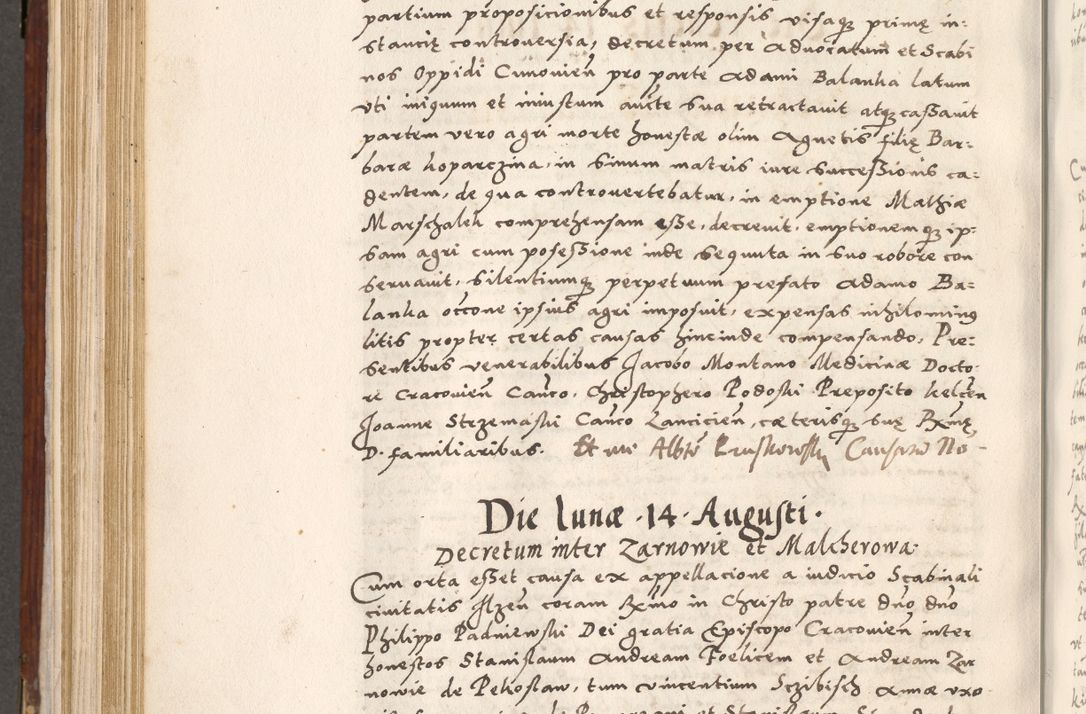 partium proposicionibus et responsis visaqȝ primę in:
stancię controversia, decretum per Advocatum et Scabi
nos Oppidi Cunovien̄ pro parte Adami Balanka latum
vti iniquum et iniustum aucte sua retractavit atqȝ cassavit
partem vero agri morte honestæ olim Agnetis filię Bar:
baræ koparczina, in sinum matris iure successionis ca:
dentem, de qua controvertebatur, in emptione Mathiæ
Marschalek comprehensam esse, decrevit, emptionemqȝ ip:
sam agri cum posessione inde sequuta in suo robore con
servavit, silentiumqȝ perpetuum prefato Adamo Ba:
lanka occone ipsius agri imposuit, expensas nihilominus
litis propter certas causas hincinde compensando, Pre:
sentibus venerabilibus Jacobo Montano Medicinæ Docto:
re Cracovien̄ Canco, Christophero Podoski Preposito kelcen
Joanne Strzemaski Canco Lancicien̄, cæterisqȝ suę Rxmę
D. familiaribus. Et me Albto Kruskowski Causarum No-
Die lunæ ·14· Augusti·
Decretum inter Zarnowie et Malcherowa·
Cum orta esset causa ex appellacione a iudicio Scabinali
civitatis Ilzen̄ coram Rxmo in Christo patre dno dno
Philippo Padniewski Dei gratia Episcopo Cracovien̄ inter
honestos Stanislaum Andream Foelicem et Andream Zar
nowie de Pekoslaw, tum vincentium Sczibisch Annæ vxo